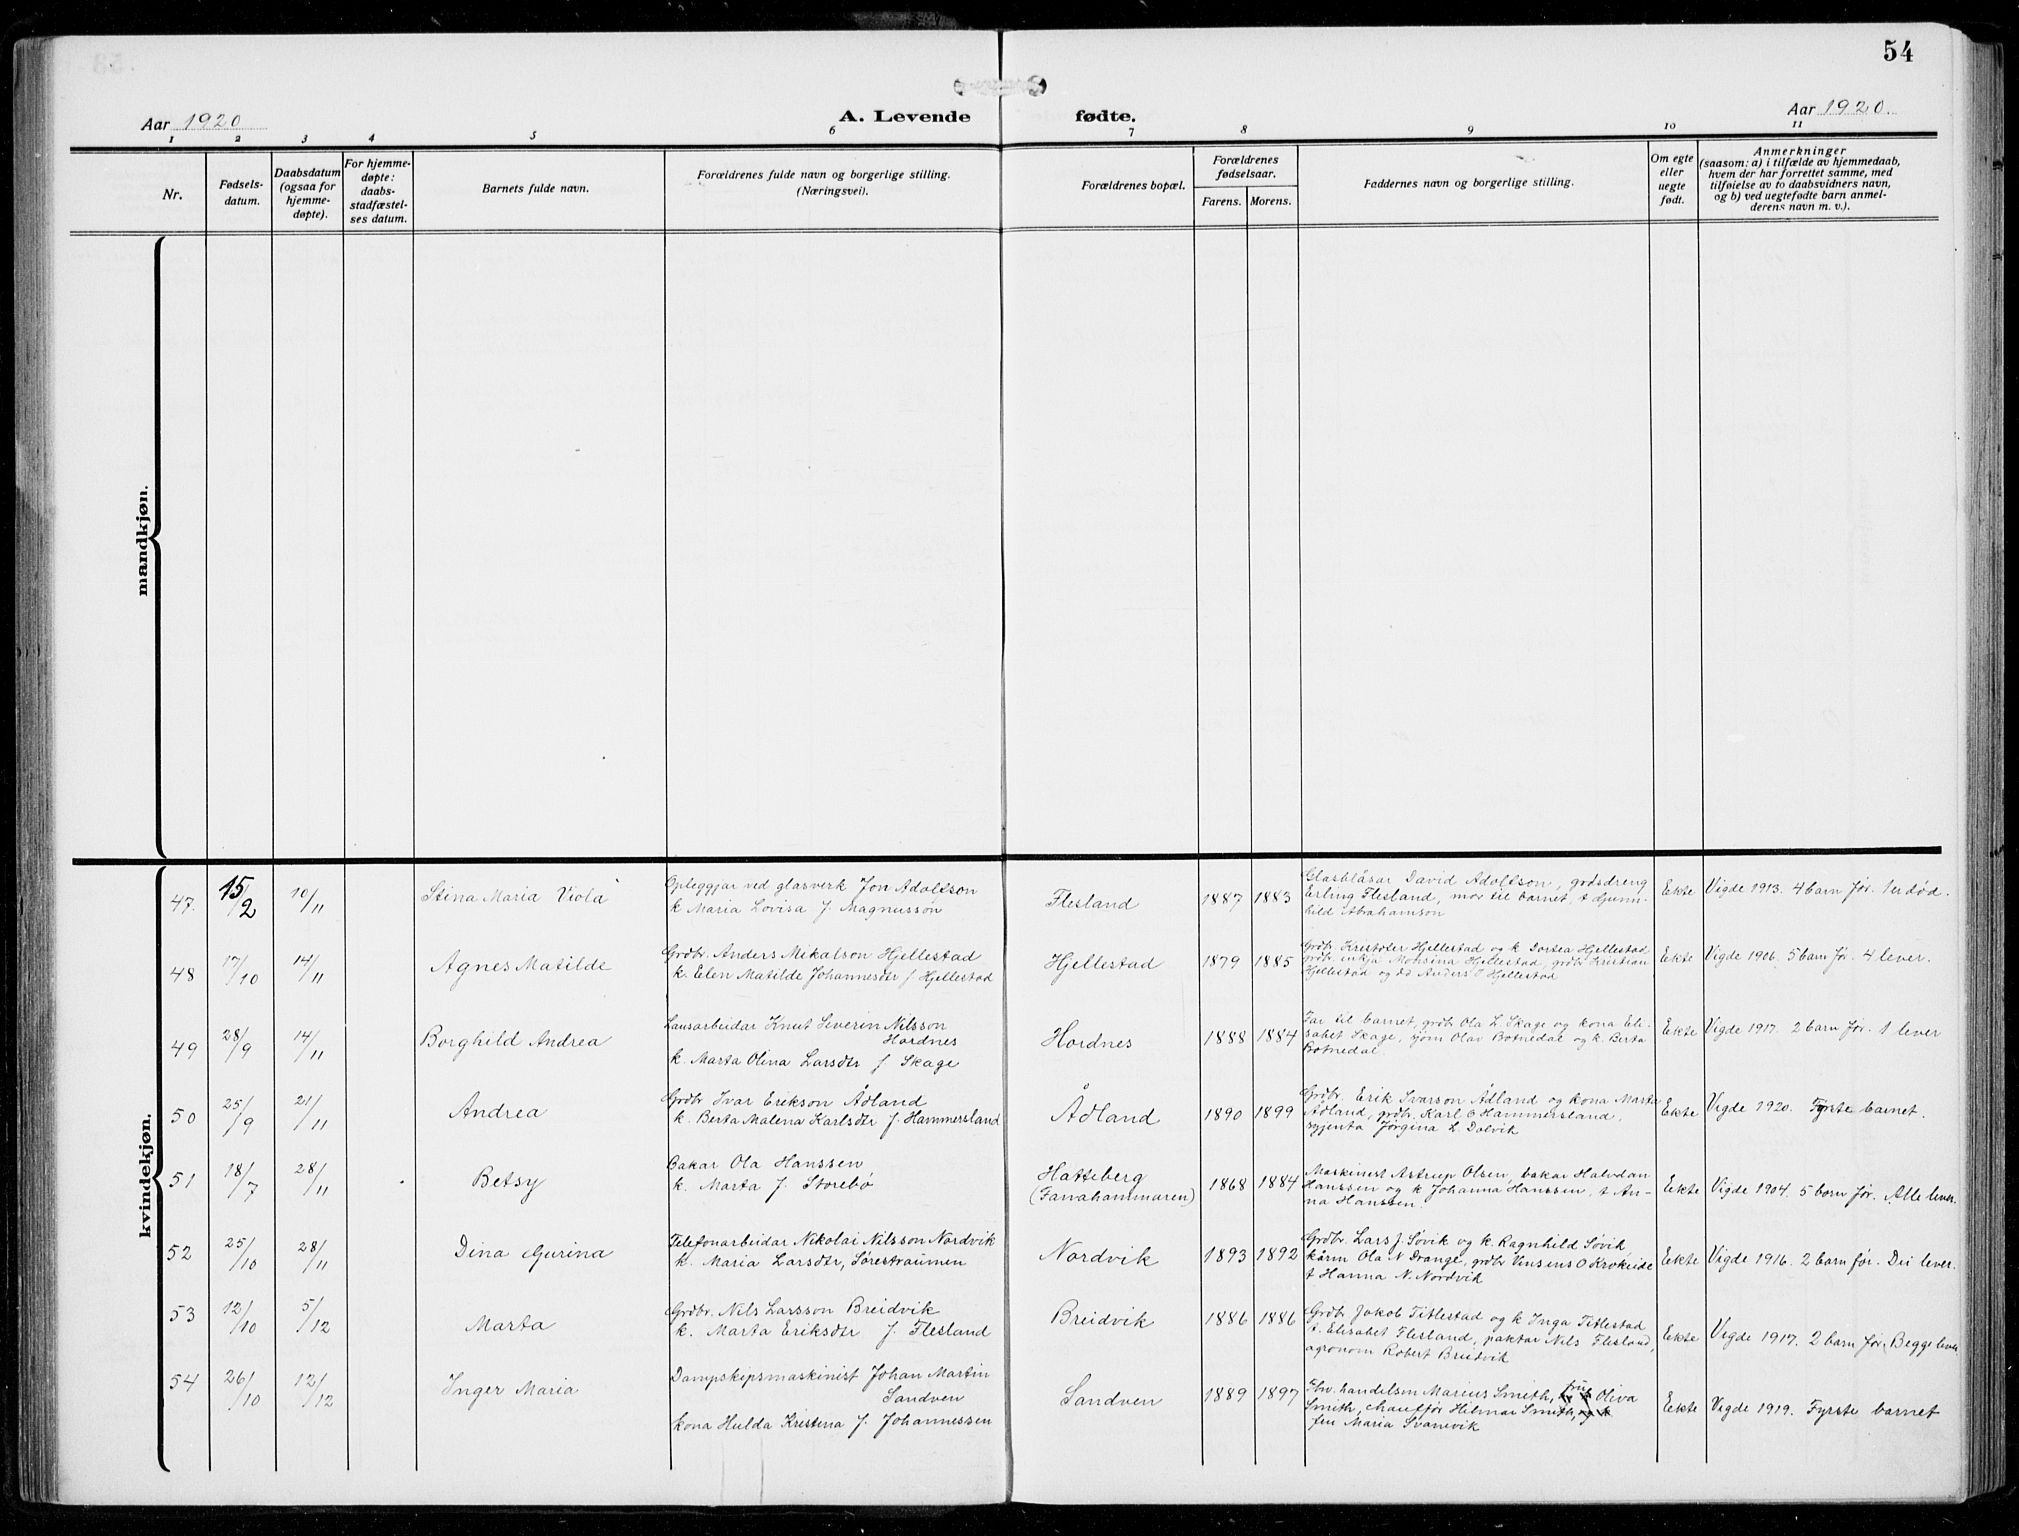 54
Aar 1920
A. Levende fødte.
Aar 1920.
1 2 3 4 5 6 7 8 9 10 11
Nr.
Fødsels-
datum.
Daabsdatum
(ogsaa for
hjemme-
døpte).
For hjemme-
døpte:
daabs-
stadfæstel-
ses datum.
Barnets fulde navn.
Forældrenes fulde navn og borgerlige stilling.
(Næringsvei).
Forældrenes bopæl.
Forældrenes
fødselsaar.
Farens. Morens.
Faddernes navn og borgerlige stilling.
Om egte
eller
uegte
født.
Anmerkninger
(saasom: a) i tilfælde av hjemmedaab,
hvem der har forrettet samme, med
tilføielse av to daabsvidners navn,
og b) ved uegtefødte barn anmel-
derens navn m. v.).
mandkjøn.
kvindekjøn.
47. 15/2 10/11 Stina Maria Viola
Opleggjar ved glasverk Jon Adolfson
k Maria Lovisa f. Magnusson
Flesland 1887 1883
Glasblåsar David Adolfson, gardsdreng
Erling Flesland, mor til barnet, t Gunn-
hild Abrahamson
Ekte Vigde 1913. 4 barn før. 1 er død.
48 17/10 14/11 Agnes Matilde
Grdbr. Anders Mikalson Hjellestad
k. Elen Matilde Johannesdtr f. Hjellestad
Hjellestad 1879 1885
Grdbr Kristofer Hjellestad og k Dortea Hjellestad
grdbr. enkja Monsina Hjellestad, grdbr Kristian
Hjellestad og dd Anders J Hjellestad
Ekte Vigde 1906. 5 barn før. 4 lever.
49 28/9 14/11 Borghild Andrea
Lausarbeidar Knut Severin Nilsson
Hordnes
k. Marta Olina Larsdtr f. Skage
Hordnes 1888 1884
Far til barnet, grdbr Ola L Skage og kona Eli-
sabet Skage, sjøm Olav Botnedal og k. Berta
Botnedal.
Ekte Vigde 1917. 2 barn før. 1 lever
50 25/9 21/11 Andrea
Grdbr Ivar Erikson Ådland
k. Berta Malena Karlsdtr f. Hammersland
Ådland 1890 1899
Grdbr. Erik Ivarson Ådland og kona Marta
Ådland, grdbr. Karl E Hammersland,
syjenta Jørgina L Dalvik
Ekte Vigde 1920. Fyrste barnet.
51 18/7 28/11 Betsy
Bakar Ola Hanssen,
k. Marta f. Storebø
Hatteberg
(Fanahammaren)
1868 1884
Maskinist Astrup Olsen, bakar Halvdan
Hanssen og k Johanna Hanssen, t An-
na Hanssen.
Ekte Vigde 1904. 5 barn før. Alle lever.
52 25/10 28/11 Dina Gurina
Telefonarbeidar Nikolai Nilsson Nordvik
k. Maria Larsdtr, Sørestraumen
Nordvik 1893 1892
Grdbr. Lars J. Søvik og k. Ragnhild Søvik,
kårm Ola N Drange, grdbr Vinsens O Krokeide
t Hanna N. Nordvik
Ekte Vigde 1916. 2 barn før. Dei lever.
53 12/10 5/12 Marta
Grdbr. Nils Larsson Breidvik
k. Marta Eriksdtr f. Flesland
Breidvik 1886 1886
Grdbr Jakob Titlestad og k Inga Titlestad
t. Elisabet Flesland, paktar Nils Flesland,
agronom Robert Breidvik
Ekte Vigde 1917. 2 barn før. Begge lever
54 26/10 12/12 Inger Maria
Dampskipsmaskinist Johan Martin
Sandven
kona Hulda Kristina f. Johannessen
Sandven 1889 1897
handelsm Marius Smith, frue Oliva
Smith, chauffør Hilmar Smith, og k
fru Maria Svanevik
Ekte Vigde 1919. Fyrste barnet